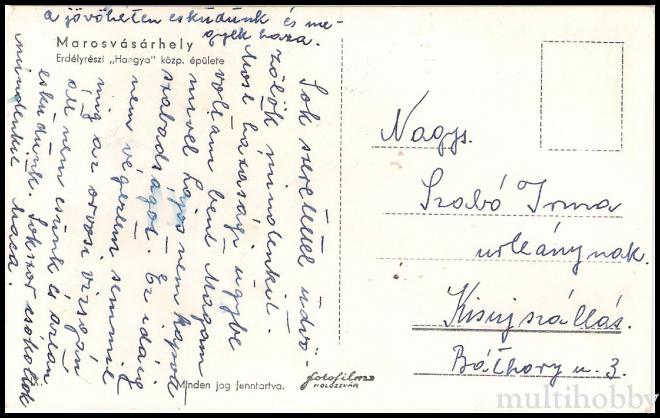 a jövőhéten esküdünk és me-
gyek haza.
Marosvásárhely
Erdélyrészi „Hangya" közp. épülete
Sok szeretettel üdvö-
zölök mindenkit.
Most házassági ügybe
voltam bent Magam
mivel Lajos nem kapott
szabadságot. Ez idáig
nem végeztem semmit
míg az orvosi vizsgán
nem esünk és azián
esküdünk. Sokszor csókollak
mindenkit Maca.
Minden jog fenntartva.
fotofilm
KOLOZSVÁR
Nagys.
Szabó Irma
urleánynak.
Kisújszállás.
Báthory u. 3.
multihobby